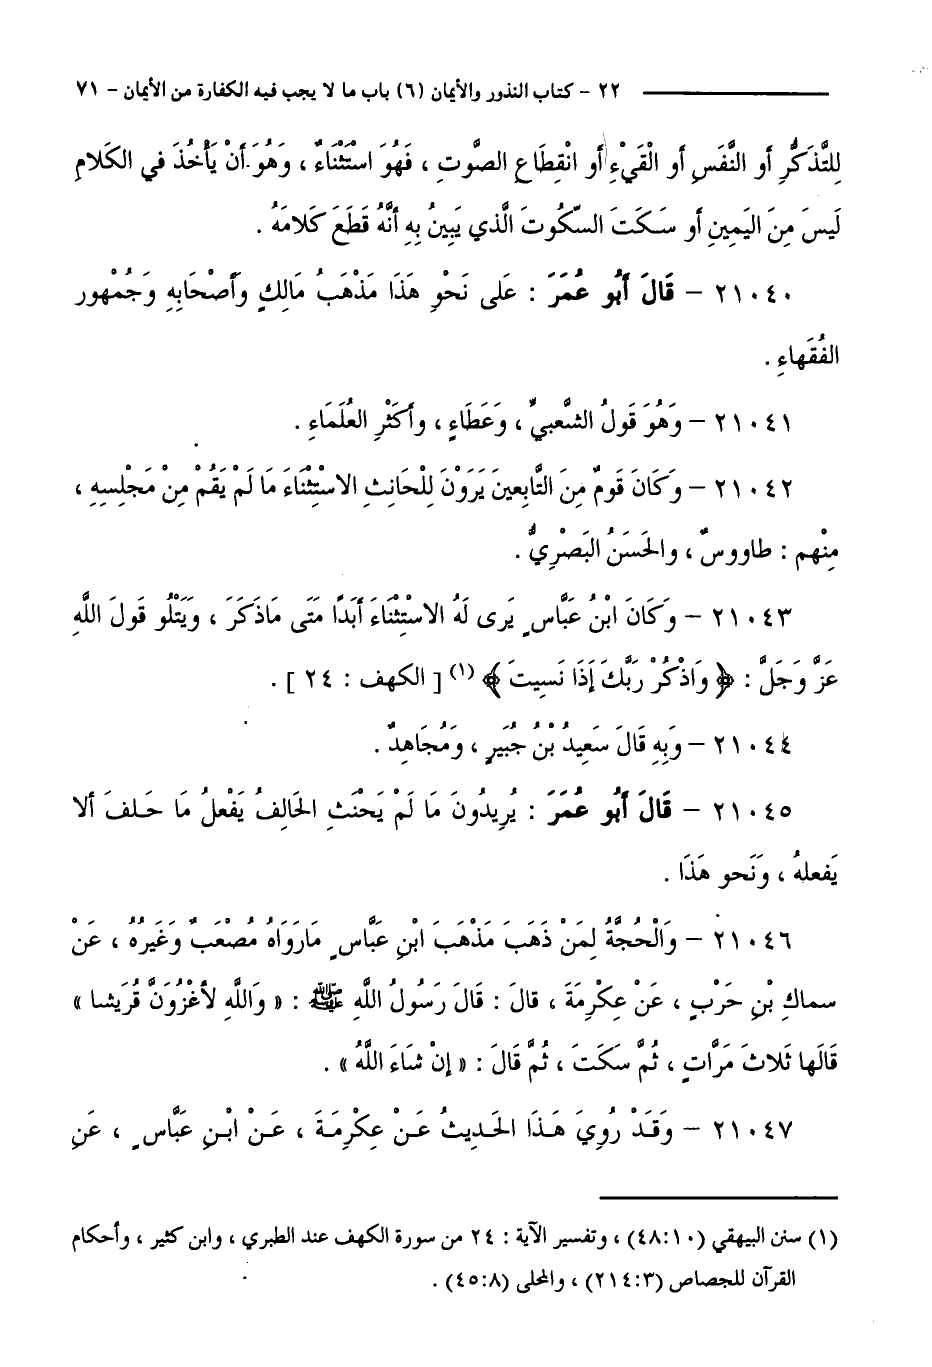 ٢٢ – كتاب النذور والأيمان (٦) باب ما لا يجب فيه الكفارة من الأيمان – ٧١
لِلتَّذَكُّرِ أو النَّفَسِ أو الْقَيْءِ أو انْقِطَاعِ الصَّوتِ ، فَهُوَ اسْتَثْنَاءٌ ، وَهُوَ أنْ يَأْخُذَ في الكَلامِ
لَيسَ مِنَ اليَمِينِ أو سَكَتَ السّكُوتَ الَّذي يَبِينُ بِهِ أنَّهُ قَطَعَ كَلامَهُ .
٢١٠٤٠ – قَالَ أَبُو عُمَرَ : عَلى نَحْوِ هَذَا مَذْهَبُ مَالِكٍ وَأَصْحَابِهِ وَجُمْهُور
الفُقَهاءِ .
٢١٠٤١ – وَهُوَ قَولُ الشَّعبيِّ ، وَعَطَاءٍ ، وأكَثْرِ العُلَمَاءِ .
٢١٠٤٢ – وَكَانَ قَومٌ مِنَ التَّابِعينَ يَرَوْنَ لِلْحَانِثِ الاسْتِثْنَاءَ مَا لَمْ يَقُمْ مِنْ مَجْلِسِهِ ،
مِنْهم : طاووسٌ ، والحَسَنُ البَصْرِيُّ .
٢١٠٤٣ – وَكَانَ ابْنُ عَبَّاسٍ يَرى لَهُ الاسْتِثْنَاءَ أبَدًا مَتَى مَاذَكَرَ ، وَيَتْلُو قَولَ اللَّهِ
عَزَّ وَجَلَّ : ﴿ وَاذْكُرْ رَبَّكَ إذَا نَسِيتَ ﴾ (١) [ الكهف : ٢٤ ] .
٢١٠٤٤ – وَبِهِ قَالَ سَعِيدُ بْنُ جُبَيرٍ ، وَمُجَاهِدٌ .
٢١٠٤٥ – قَالَ أَبُو عُمَرَ : يُرِيدُونَ مَا لَمْ يَحْنَثِ الحَالِفُ يَفْعلُ مَا حَـلفَ ألا
يَفعلهُ ، وَنَحو هَذَا .
٢١٠٤٦ – وَالْحُجَّةُ لِمَنْ ذَهَبَ مَذْهَبَ ابْنِ عَبَّاسٍ مَارَوَاهُ مُصْعَبٌ وَغَيرُهُ ، عَنْ
سماكِ بْنِ حَرْبٍ ، عَنْ عِكرِمَةَ ، قالَ : قَالَ رَسُولُ اللَّهِ ﷺ : « وَاللَّهِ لأغْزُوَنَّ قُرَيشا »
قَالَها ثَلاثَ مَرَّاتٍ ، ثُمَّ سَكَتَ ، ثُمَّ قَالَ : « إنْ شَاءَ اللَّهُ » .
٢١٠٤٧ – وَقَـدْ رُوِيَ هَـذَا الحَـديثُ عَـنْ عِكْرِمَـةَ ، عَـنْ ابْـنِ عَبَّاسٍ ، عَنِ
(١) سنن البيهقي (٤٨:١٠) ، وتفسير الآية : ٢٤ من سورة الكهف عند الطبري ، وابن كثير ، وأحكام
القرآن للجصاص (٢١٤:٣) ، والمحلى (٤٥:٨) .